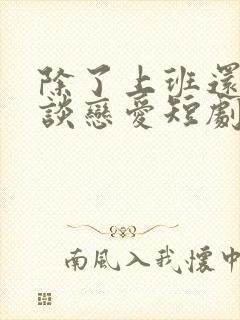 除了上班還
談戀愛短劇
南風入我懷中